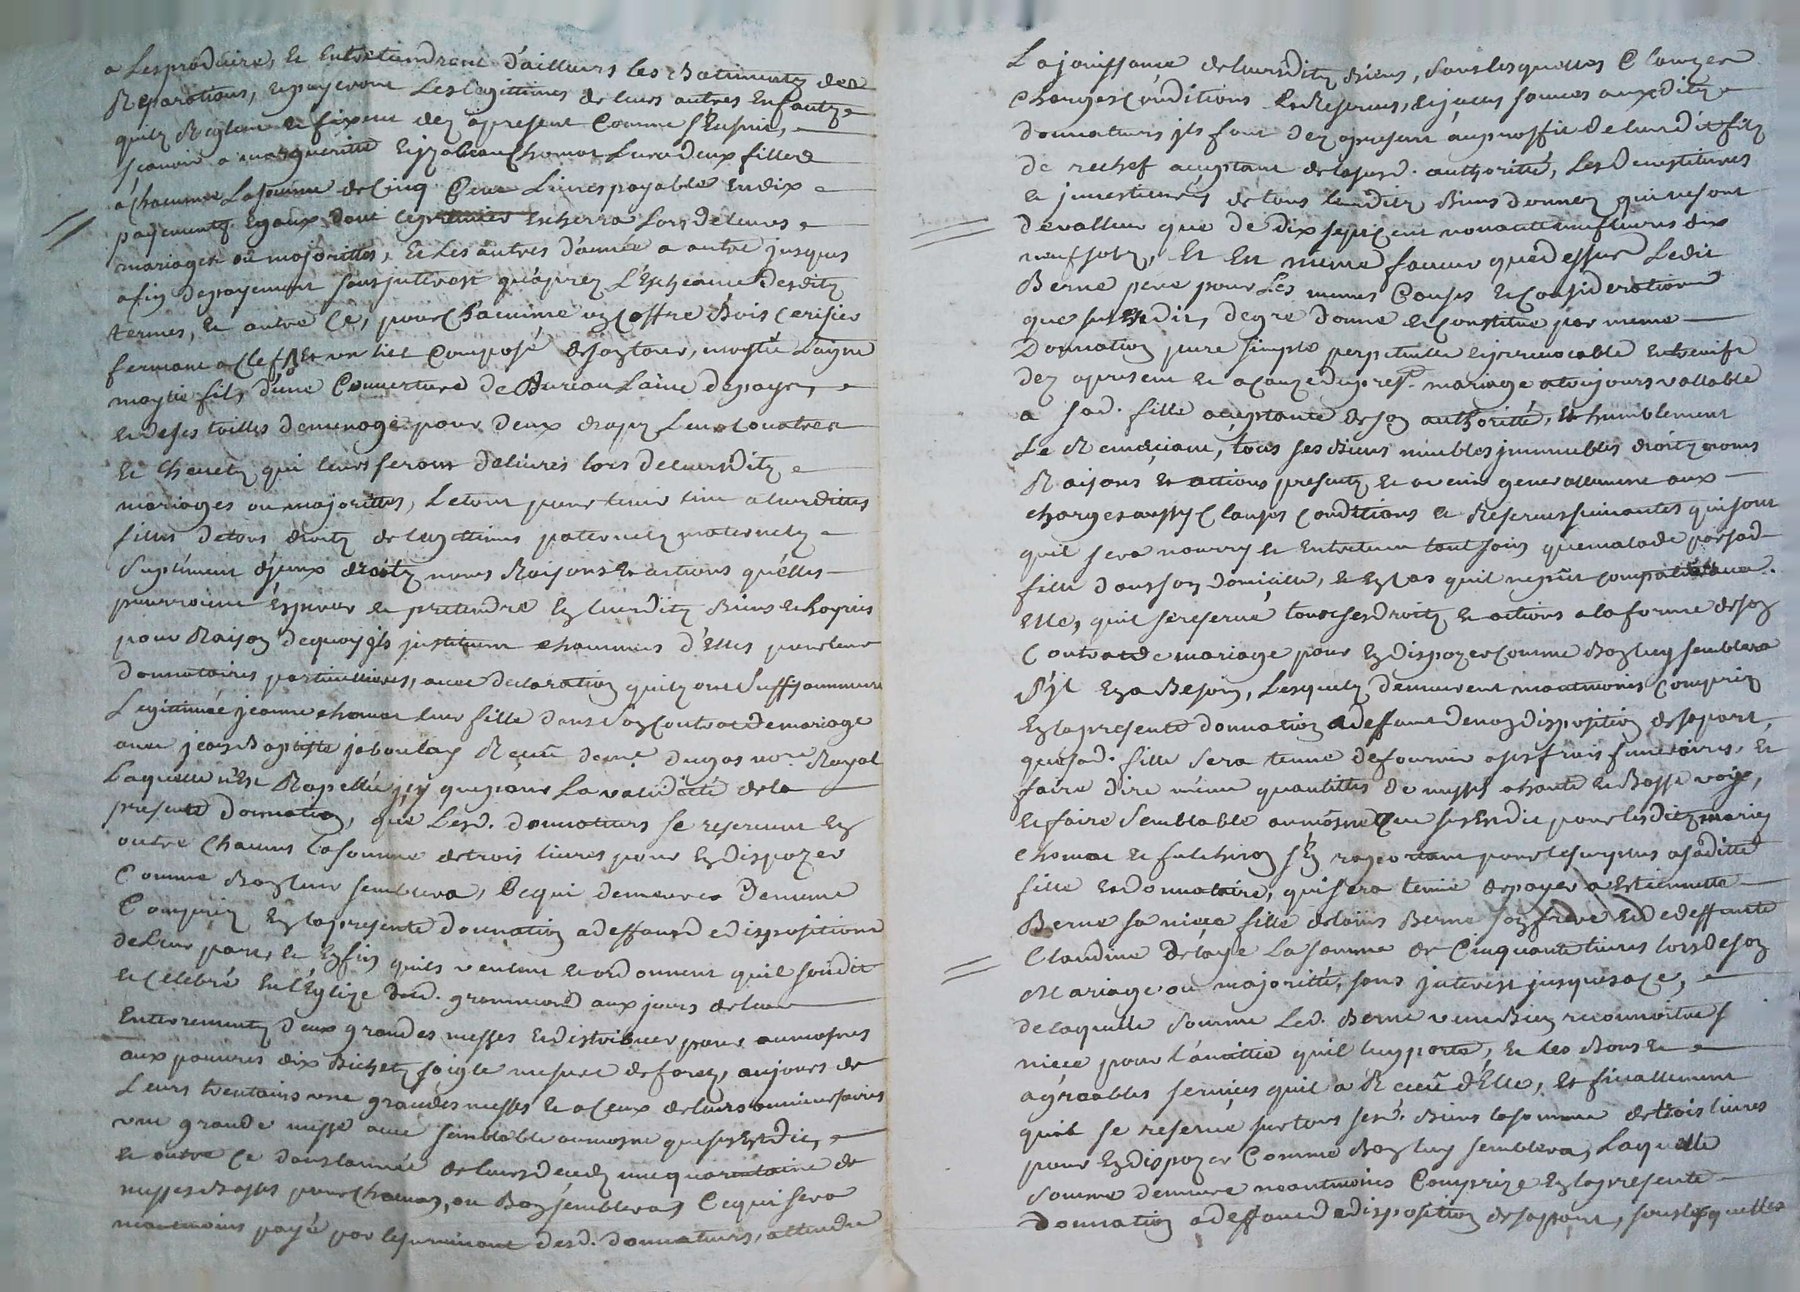 a Lesproduire, et Entretiendront d'ailleurs les Batimentz des
Reparations, et payeront Les legittimes de leurs autres Enfantz
quilz Reglent et fixent dez apresent Comme s'Ensuit,
scavoir a margueritte Et izabeau Chomat Leurs deux filles
a chacune La somme de Cinq Cent Livres payable En dix
payementz Egaux dont le premier Escherra Lors de leurs
mariages ou majorittés, Et Les autres d'année a autre jusques
a fin de payement sans interest qu'aprez L'Escheance desditz
termes, Et outre Ce, pour Chacunne un Coffre Bois Cerisier
fermant a Clef, Et un lict Composé de son tour, moytié Laine
moytié fil, d'une Couverture de Bureau Laine de pays,
et de ses toilles de menage pour deux drapz Leur Couatres
Et Chevetz qui leurs seront delivrés lors de leursditz
mariages ou majorittés, Le tout pour tenir lieu a leursdittes
filles de tous droitz de legittimes paternelz maternelz
Suplement d'jceux droitz noms Raisons et actions qu'elles
pourroient Esperer et pretendre En leursditz Biens et hoyries
pour Raison de quoy ils jnstituent chacunnes d'Elles pour leur
donnataires particullieres, avec declaration quilz ont Suffisamment
Legittimé jeanne chomat leur fille dans Son Contrat de mariage
avec jean Baptiste jaboulay Receu de me dugas nore Royal
Laquelle n'Est Rapellée jcy que pour La validitté de la
presente donnation, que Lesd. donnateurs se reservent En
outre Chacuns La somme de trois livres pour En dispozer
Comme Bon leur semblera, Ce qui demeurera De meme
Comprix En la presente donnation a deffaud de dispositions
de leur part, et Enfin quils veulent et ordonnent qu'il soit dit
et Célébré En l'Eglize dud. grammond aux jours de leur
Enterrementz deux grandes messes et distribuer pour aumosnes
aux pauvres dix Bichetz soigle mesure de forez, aujours de
Leurs trentains une grandes messes et a Ceux de leurs anniversaires
une grande messe avec semblable aumosne que susEst dit,
Et outre Ce dans l'année de leurs deces une quarentaine de
messes Basses pour Chacun, ou Bon semblera, Ce qui sera
neanmoins payé par le survivant desd. donnateurs, attendu
La jouissance de leursditz Biens, sous lesquelles Clauzes
Charges Conditions et Reserves, dejacez sources auxditz
donnateurs ils font dez apresent au proffit de leurdit fils
de rechef acceptant de lasusd. authoritté, Les Devestitures
et jnvestitures de tous lesditz Biens donnez qui ne sont
de valleur que de dix sept Cent nonante neuf livres dix
neuf sols, Et En meme faveur que dessus Ledit
Berne pere pour Les memes Causes et Considerations
que susEst dit, de gre donne et Constitue par meme
Donnation pure simple perpetuelle et jrrevocable Entre vifs
dez apresent et a Cauze du prest mariage a toujours vallable
a sad. fille acceptante de son authoritté, et humblement
Le Remerciant, tous ses Biens meubles jmmeubles droitz noms
Raisons et actions presentz et avenir generallement aux
charges aussy Clauses Conditions et Reserves suivantes qui sont
quil sera nourry et Entretenu tant sain que malade par sad.
fille dans son domicille, et En Cas qu'il ne put compatir avec
Elle, quil se reserve tous ses droitz et actions a la forme de son
Contrat de mariage pour En dispozer Comme Bon luy semblera
S'jl En a Besoin, Lesquelz demeurent neantmoins Comprix
En la presente donnation a deffaut de non disposition de sa part,
que sad. fille sera tenue de fournir a ses frais funeraires, Et
faire dire même quantittés de messes a haute et Basse voix,
et faire semblable aumosne que susEst dit pour lesditz mariez
Chomat et fulchiron s'En raportant pour le surplus a saditte
fille Et donnataire, qui sera tenüe de payer a Estiennette
Berne sa niece fille de loüis Berne son frere Et de deffunte
Claudine delaye La somme de Cinquante livres lors de son
Mariage ou majoritté, sans jnterest jusques a Ce,
de laquelle somme Led. Berne veut Bien reconnoitre s
niece pour l'amitié quil luy porte, et les Bons Et
agreables services quil a Receu d'Elle, Et finallement
quil se reserve sur tous sesd. Biens la somme de trois livres
pour En dispozer Comme Bon luy semblera, Laquelle
Somme demeure neantmoins Comprize En la presente
Donnation a deffaud de disposition de sa part, sous lesquelles